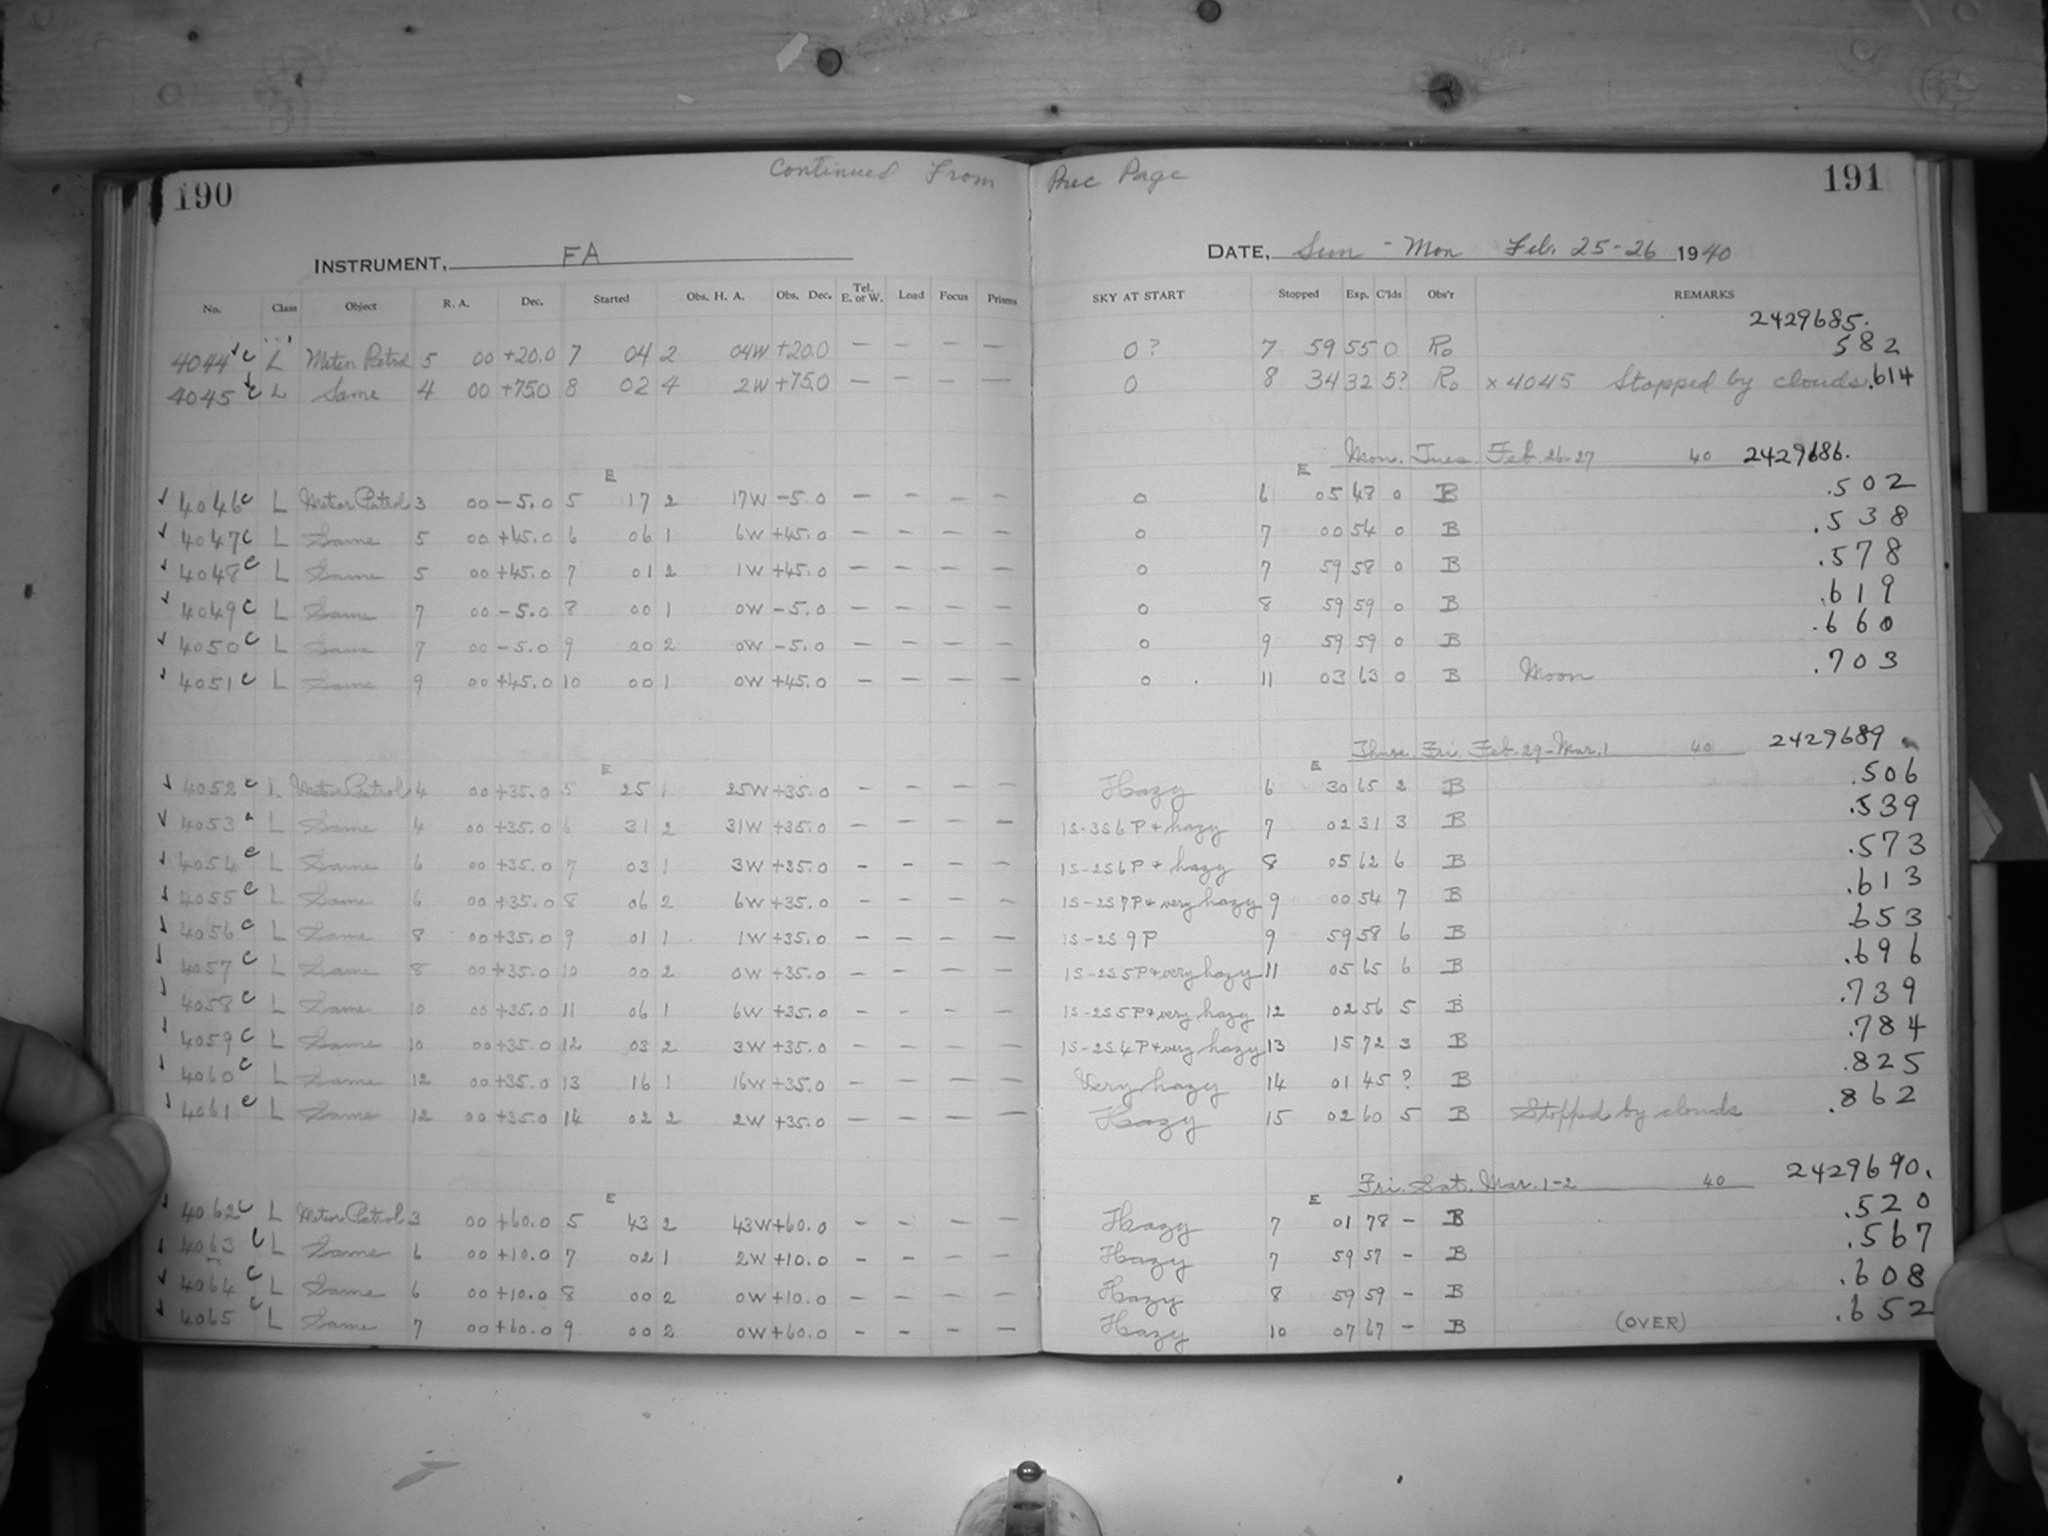 Continued From Prec Page
190 191
INSTRUMENT, FA DATE, Sun - Mon Feb. 25-26 1940
No. Class Object R. A. Dec. Started Obs. H. A. Obs. Dec. Tel. E. or W. Load Focus Prisms SKY AT START Stopped Exp. C'lds Obs'r REMARKS
2429685.
4044 c L Meteor Patrol 5 00 +20.0 7 04 2 04W +20.0 — — — — 0? 7 59 55 0 Ro 582
4045 c L Same 4 00 +75.0 8 02 4 2W +75.0 — — — — 0 8 34 32 5? Ro x 4045 Stopped by clouds .614
Mon. Tues. Feb. 26-27 40 2429686.
E E
4046 c L Meteor Patrol 3 00 -5.0 5 17 2 17W -5.0 — — — — 0 6 05 48 0 B .502
4047 c L Same 5 00 +45.0 6 06 1 6W +45.0 — — — — 0 7 00 54 0 B .538
4048 c L Same 5 00 +45.0 7 01 2 1W +45.0 — — — — 0 7 59 58 0 B .578
4049 c L Same 7 00 -5.0 ? 00 1 0W -5.0 — — — — 0 8 59 59 0 B .619
4050 c L Same 7 00 -5.0 9 00 2 0W -5.0 — — — — 0 9 59 59 0 B .660
4051 c L Same 9 00 +45.0 10 00 1 0W +45.0 — — — — 0 11 03 63 0 B Moon .703
Thurs. Fri. Feb. 29-Mar. 1 40 2429689.
E E
4052 c L Meteor Patrol 4 00 +35.0 5 25 1 25W +35.0 — — — — Hazy 6 30 65 2 B .506
4053 c L Same 4 00 +35.0 6 31 2 31W +35.0 — — — — 1S-3S 6P + hazy 7 02 31 3 B .539
4054 c L Same 6 00 +35.0 7 03 1 3W +35.0 — — — — 1S-2S 6P + hazy 8 05 62 6 B .573
4055 c L Same 6 00 +35.0 8 06 2 6W +35.0 — — — — 1S-2S 7P + very hazy 9 00 54 7 B .613
4056 c L Same 8 00 +35.0 9 01 1 1W +35.0 — — — — 1S-2S 9P 9 59 58 6 B .653
4057 c L Same 8 00 +35.0 10 00 2 0W +35.0 — — — — 1S-2S 5P + very hazy 11 05 65 6 B .696
4058 c L Same 10 00 +35.0 11 06 1 6W +35.0 — — — — 1S-2S 5P + very hazy 12 02 56 5 B .739
4059 c L Same 10 00 +35.0 12 03 2 3W +35.0 — — — — 1S-2S 4P + very hazy 13 15 72 3 B .784
4060 c L Same 12 00 +35.0 13 16 1 16W +35.0 — — — — Very hazy 14 01 45 ? B .825
4061 c L Same 12 00 +35.0 14 02 2 2W +35.0 — — — — Hazy 15 02 60 5 B Stopped by clouds .862
Fri. Sat. Mar. 1-2 40 2429690.
E E
4062 c L Meteor Patrol 3 00 +60.0 5 43 2 43W +60.0 — — — — Hazy 7 01 78 - B .520
4063 c L Same 6 00 +10.0 7 02 1 2W +10.0 — — — — Hazy 7 59 57 - B .567
4064 c L Same 6 00 +10.0 8 00 2 0W +10.0 — — — — Hazy 8 59 59 - B .608
4065 c L Same 7 00 +60.0 9 00 2 0W +60.0 — — — — Hazy 10 07 67 - B (OVER) .652